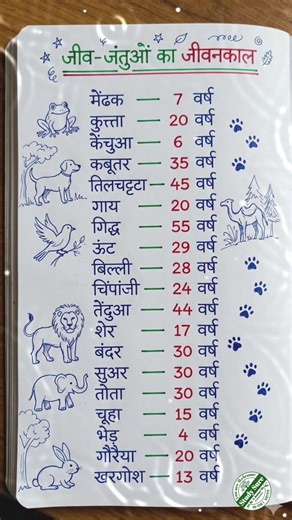 जीव-जंतुओं का जीवनकाल
मेंढक — 7 वर्ष
कुत्ता — 20 वर्ष
केंचुआ — 6 वर्ष
कबूतर — 35 वर्ष
तिलचट्टा — 45 वर्ष
गाय — 20 वर्ष
गिद्ध — 55 वर्ष
ऊंट — 29 वर्ष
बिल्ली — 28 वर्ष
चिंपांजी — 24 वर्ष
तेंदुआ — 44 वर्ष
शेर — 17 वर्ष
बंदर — 30 वर्ष
सुअर — 30 वर्ष
तोता — 30 वर्ष
चूहा — 15 वर्ष
भेड़ — 4 वर्ष
गौरैया — 20 वर्ष
खरगोश — 13 वर्ष
Study Sure